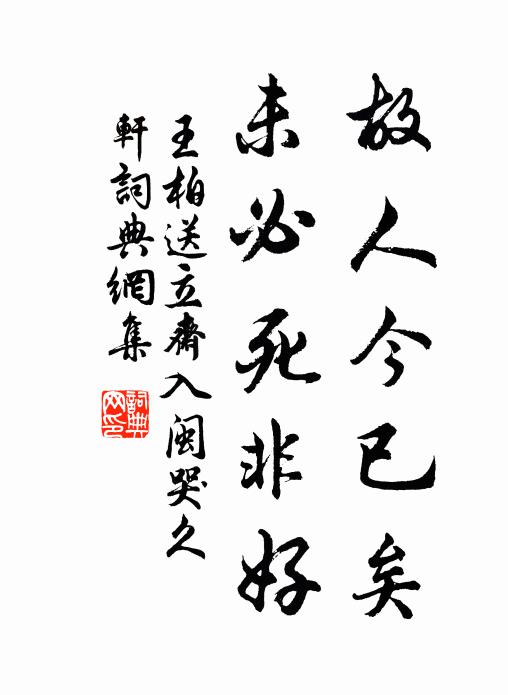 故人今已矣
未必死非好
王柏送立齋入閩哭久
軒詞典網集
詞典网印